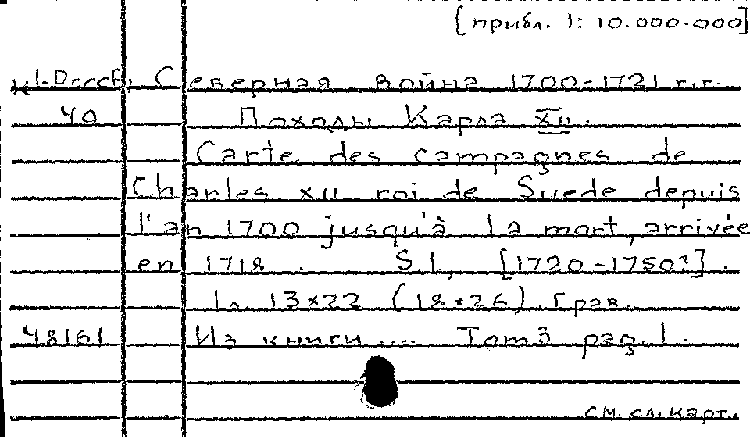 [прибл. 1: 10.000.000]
Северная война 1700-1721 г.г.
40 Походы Карла XII.
Carte des campagnes de
Charles XII roi de Suede depuis
l'an 1700 jusqu'à la mort, arrivée
en 1718. S.l., [1720-1750?].
1л. 13×22 (18×26). Грав.
48161 Из книги .... Tom 3 pag. 1.
см. сл. карт.